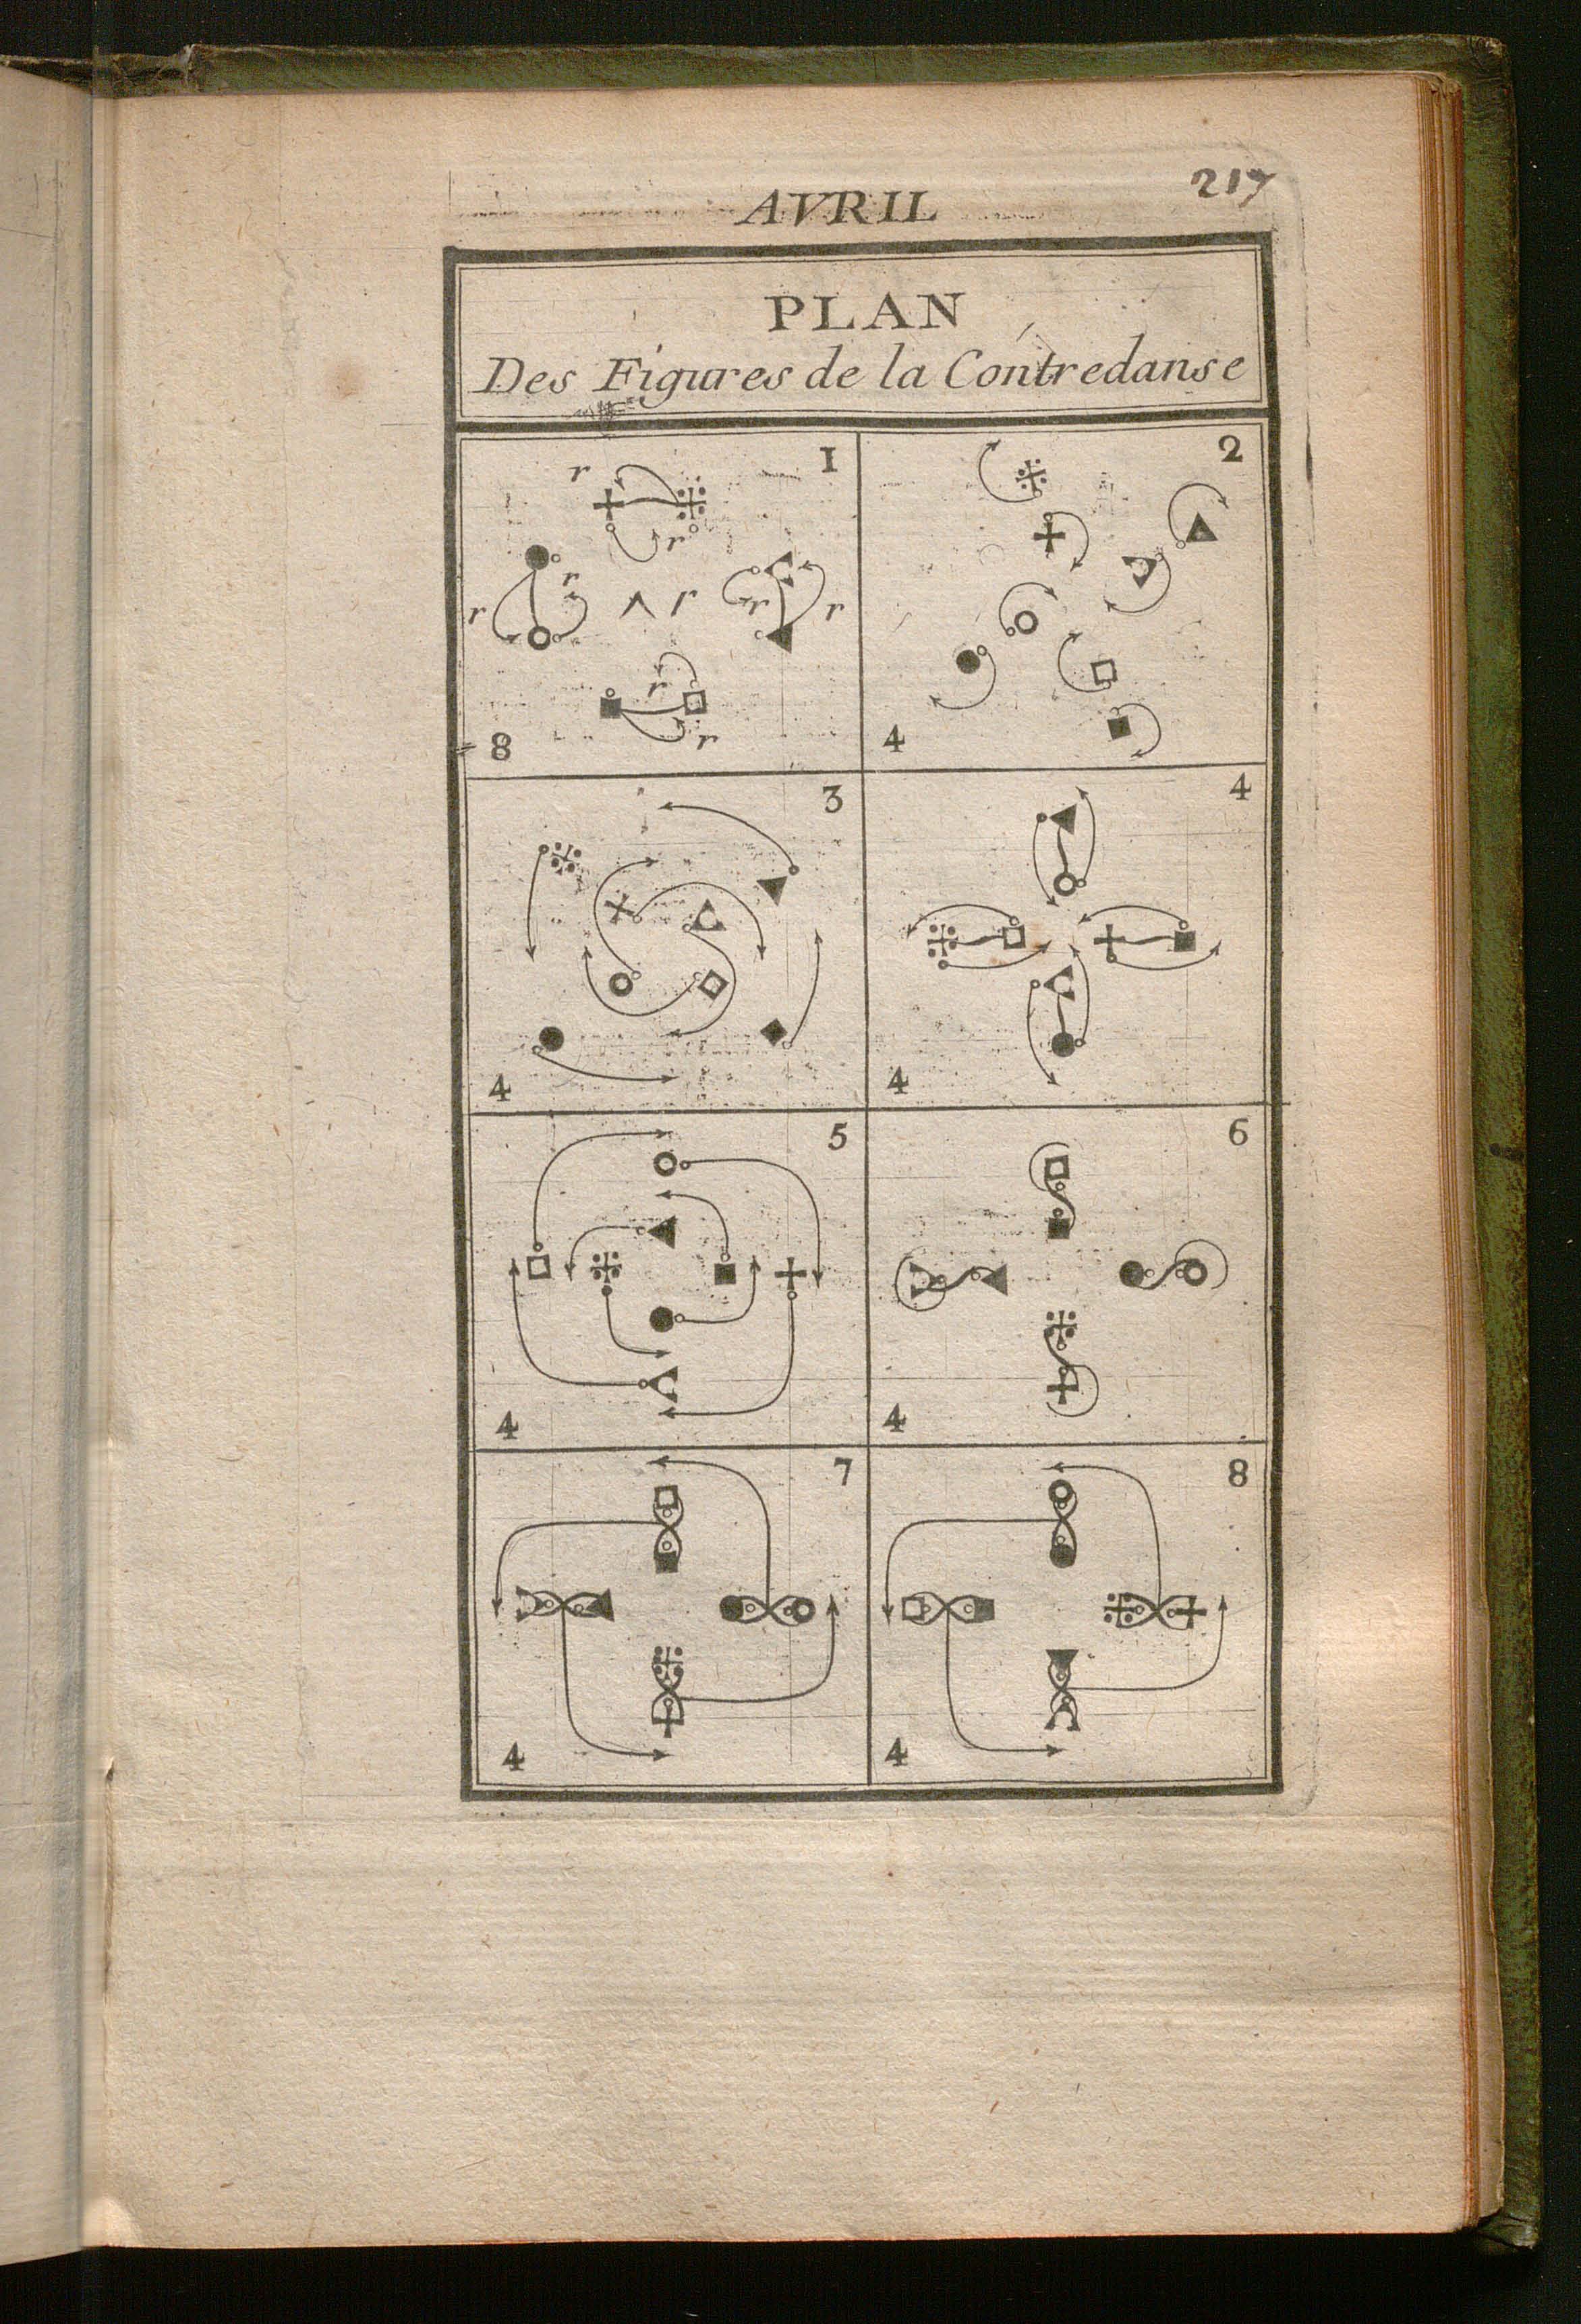 217
AVRIL
PLAN
Des Figures de la Contredanse
1
r
r
r
r
r
r
r
r
r
8
2
4
3
4
4
4
5
4
6
4
7
4
8
4